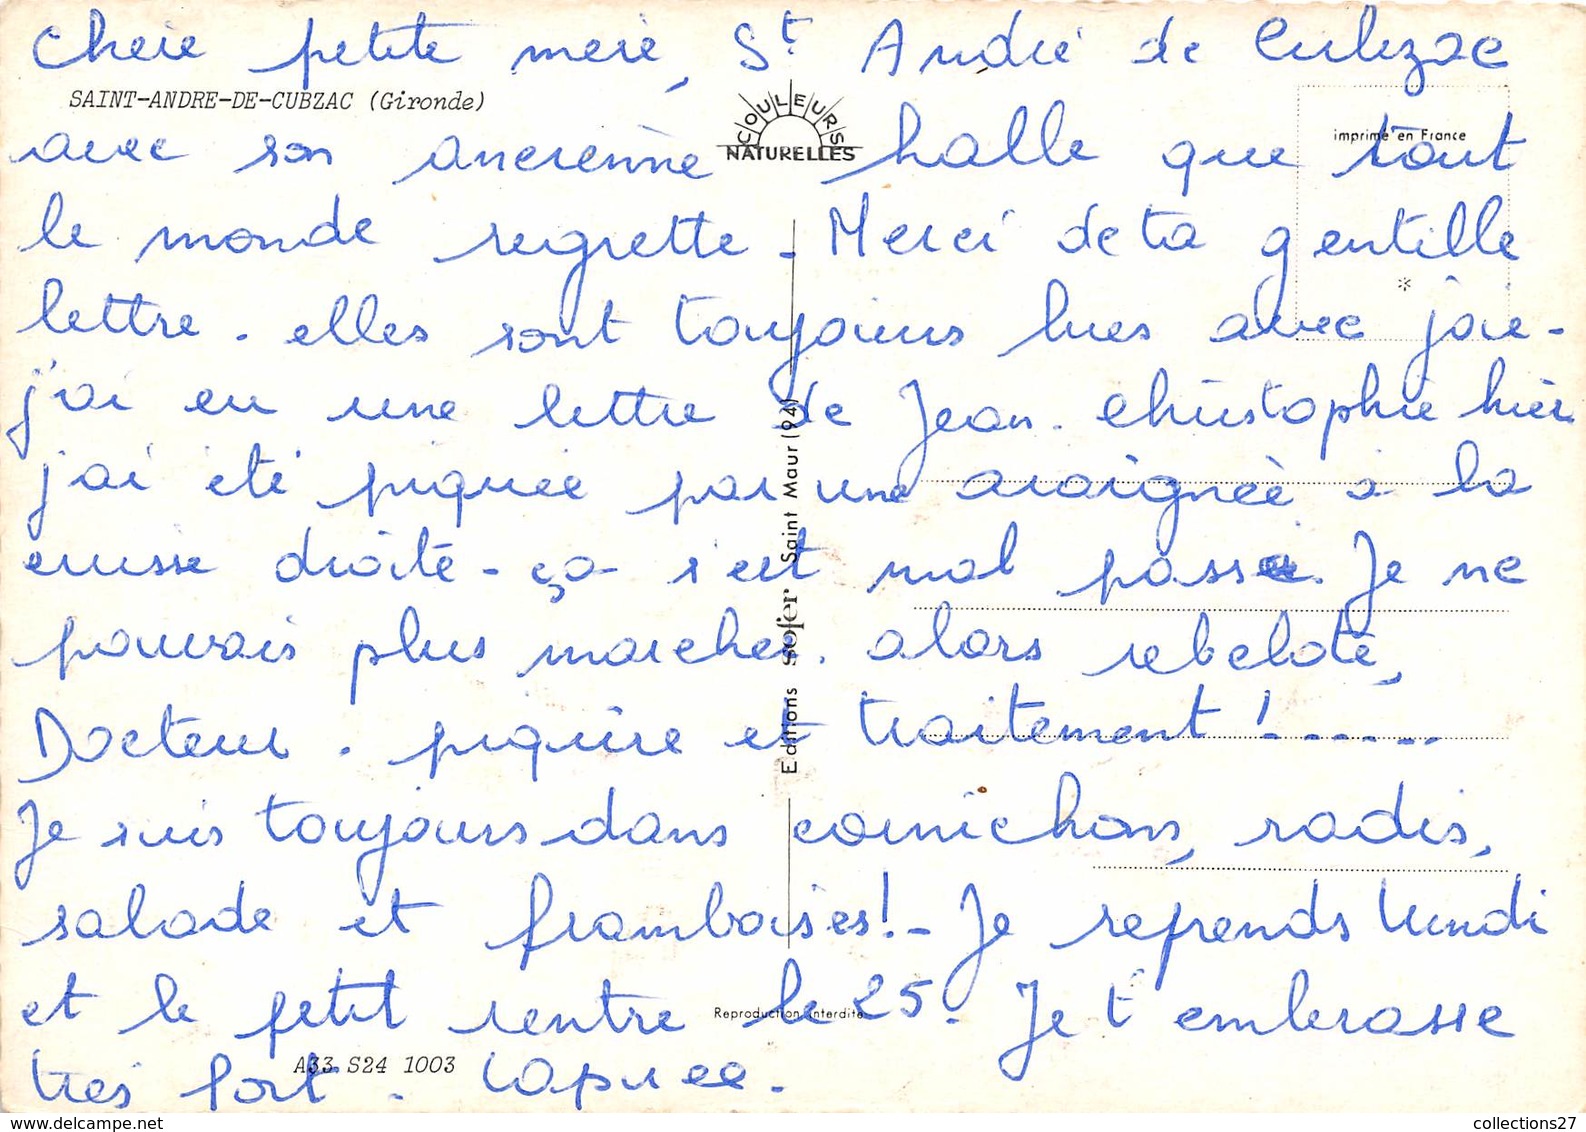 Chere petite mere, St André de Cubzac
SAINT-ANDRE-DE-CUBZAC (Gironde)
COULEURS
NATURELLES
imprimé en France
avec son ancienne halle que tout
le monde regrette - Merci de ta gentille
lettre. elles sont toujours lues avec joie -
j'ai eu une lettre de Jean. christophe hier
j'ai été piquée par une araignée à la
cuisse droite - ça s'est mal passé. Je ne
pouvais plus marcher. alors rebelote,
Docteur. piqûre et traitement !......
Je suis toujours dans cornichons, radis,
salade et framboises! - Je reprends lundi
et le petit rentre le 25. Je t'embrasse
très fort.
Editions sofer Saint Maur (94)
Reproduction interdite
A33 S24 1003
collections27